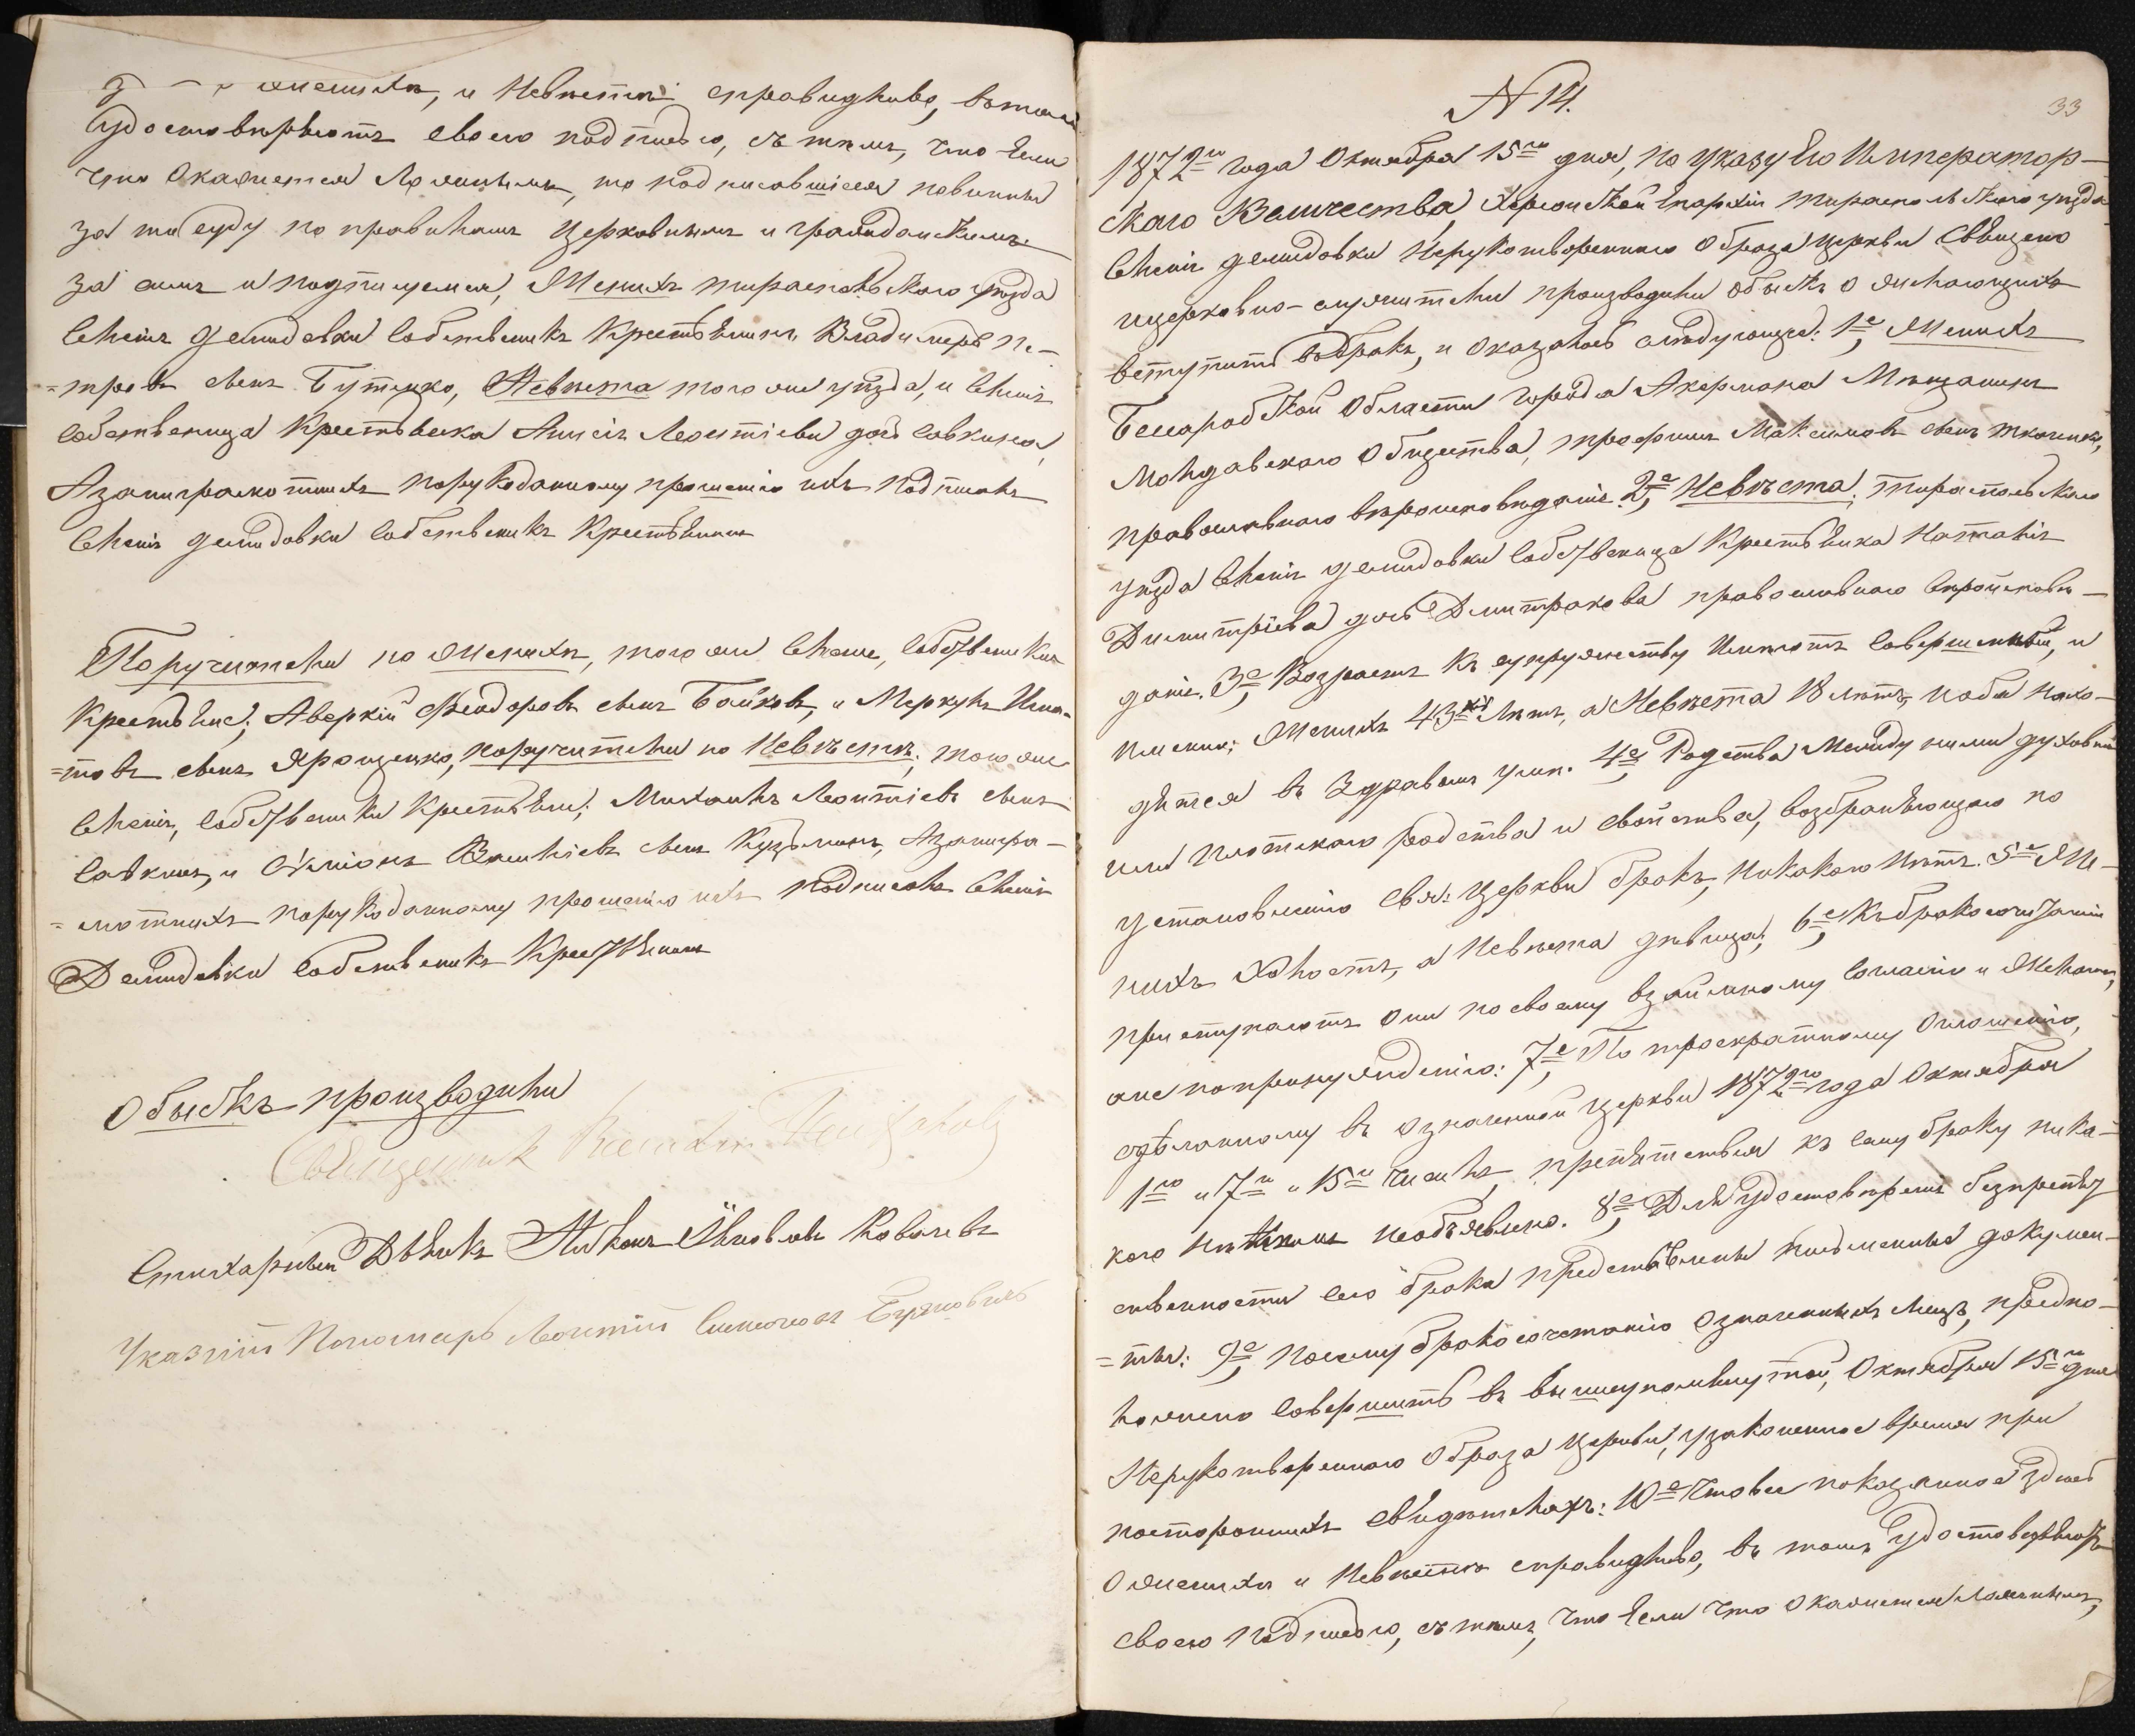 женихѣ, и Невѣстѣ справидливо, вътомъ
Удостовѣряютъ своею подписью, съ тѣмъ, что Если
что Окажется Ложнымъ, то подписавшіеся повинны
за то суду по правиламъ Церковнымъ и гражданскимъ.
За симъ и подпишемся, Женихъ тираспольскаго уѣзда
Сѣленія Демидовки Собственикъ Крестьянинъ Владимеръ Пе-
=тровъ сынъ Бутенко, Невѣста того же уѣзда, и Сѣленія
Собственица Крестьянка Анисія Леонтіева дочь Савкина,
Азаниграмотныхъ порукоданному прошенію ихъ подписалъ
Сѣленія Демидовки Собственикъ Крестьянинъ
Поручители по Женихѣ, того же Селенія, Собственики
Крестьяне; Аверкій Феодоровъ сынъ Бойковъ, и Меркулъ Игна-
=товъ сынъ Ярощенко, поручители по Невѣстѣ; того же
Селенія, Собственики Крестьяне; Михаилъ Леонтіевъ сынъ
Савкинъ, и Симіонъ Василіевъ сынъ Кузьминъ, Азанигра-
=мотныхъ порукоданному прошенію ихъ подписалъ Селенія
Демидовки Собственикъ Крестьянинъ
Обыскъ производили
Священникъ
Стихарный Дьякъ Никонъ Яковлевъ Ковалевъ
Указній Пономарь Леонтій Симеоновъ
N 14.
33
1872го года Октября 15го дня, по Указу Его Император-
скаго Величества, Херсонской Епархіи тираспольскаго уѣзда
Сѣленія Демидовки Нерукотвореннаго Образа Церкви Священо
ицерковно-служители производили обыскъ о желающихъ
вступить вбракъ, и оказалось слѣдующее: 1е, Женихъ
Бесарабской Области города Акермана Мѣщанинъ
Молдавскаго Общества, трофимъ Максимовъ сынъ ткаченко,
православнаго вѣроисповѣданіе. 2е, Невѣста, Тираспольскаго
уѣзда Сѣленія Демидовки Собственица Крестьянка Наталія
Димитріева дочь Дмитракова православнаго вѣроисповѣ-
даніе. 3е, Возрастъ къ супружеству Имѣютъ совершенный, и
именно; Женихъ 43хъ Лѣтъ, а Невѣста 18 лѣтъ, иоба нахо-
дятся въ Здравомъ умѣ. 4е, Родства Между ними духовнаго
или плотскаго родства и свойства, возбраняющаго по
установленію Свя: Церкви бракъ, никакаго Нѣтъ. 5е Же-
нихъ Холостъ, а Невѣста дѣвица, 6е, Къ бракосочитанію
приступаютъ Они по своему взаимному Согласію и Желанію,
ане попринужденію: 7е, По троекратному Оглошенію,
здѣланному въ означенной Церкви 1872го года Октября
1го и 7го и 15го числъ препятствія къ сему браку ника-
кого Никѣмъ необъявлено. 8е, Для Удостовѣренія безпрепят
ственности сего брака представлены письменные докумен-
=ты: 9е, Посему бракосочетанію Означенныхъ лицъ, предпо-
ложено совершить въ вышеупомянутой, Октября 15го дня
Нерукотвореннаго Образа Церкви, узаконенное время при
постороннихъ Свидѣтеляхъ: 10е Что все показанное Здѣсь
О женихѣ и Невѣстѣ справидливо, въ томъ Удостовѣряютъ
своею Подписью, съ тѣмъ, Что Если Что Окажется Ложнымъ,